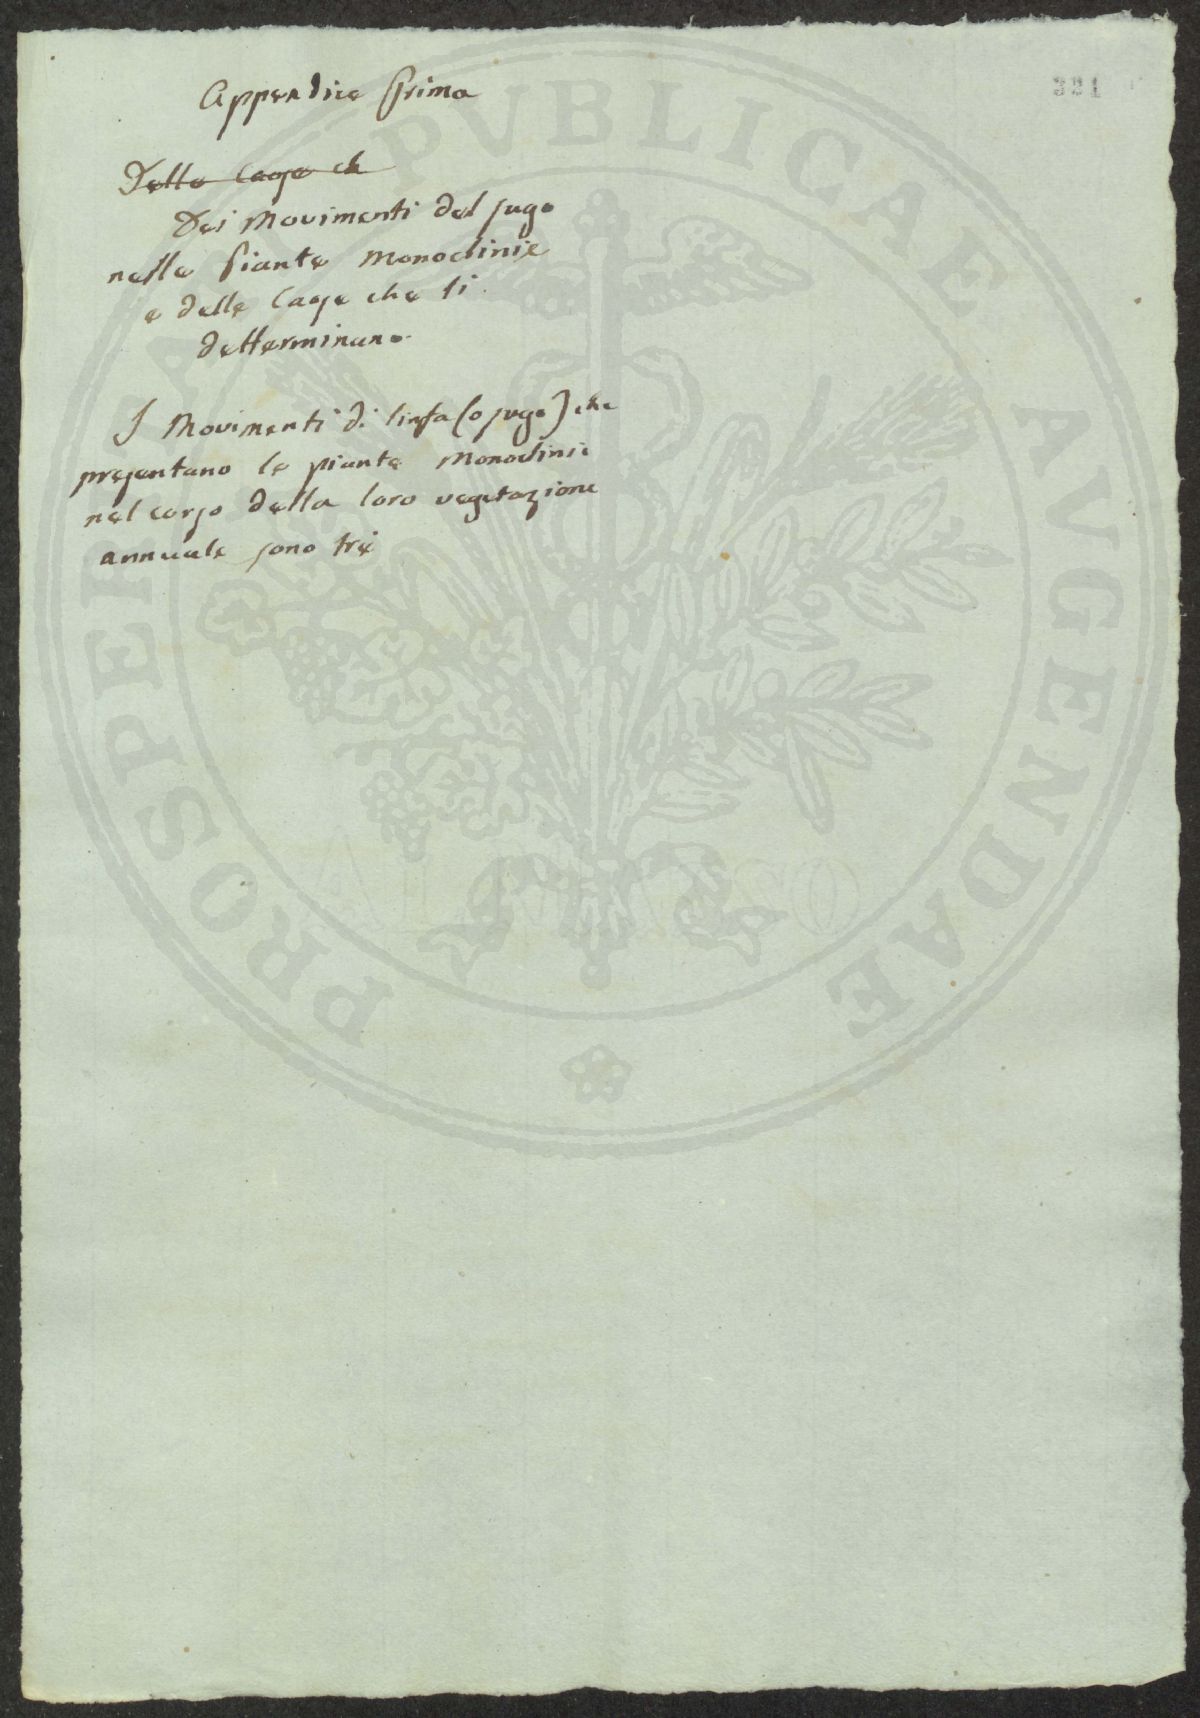 321
Appendice Prima
Delle Cause ch
Dei Movimenti del sugo
nelle Piante Monoclinie
e delle Cause che li
detterminano.
I Movimenti di linfa (o sugo) che
presentano le piante Monoclinie
nel corso della loro vegetazione
annuale sono trè
PROSPERITATI PVBLICAE AVGENDAE